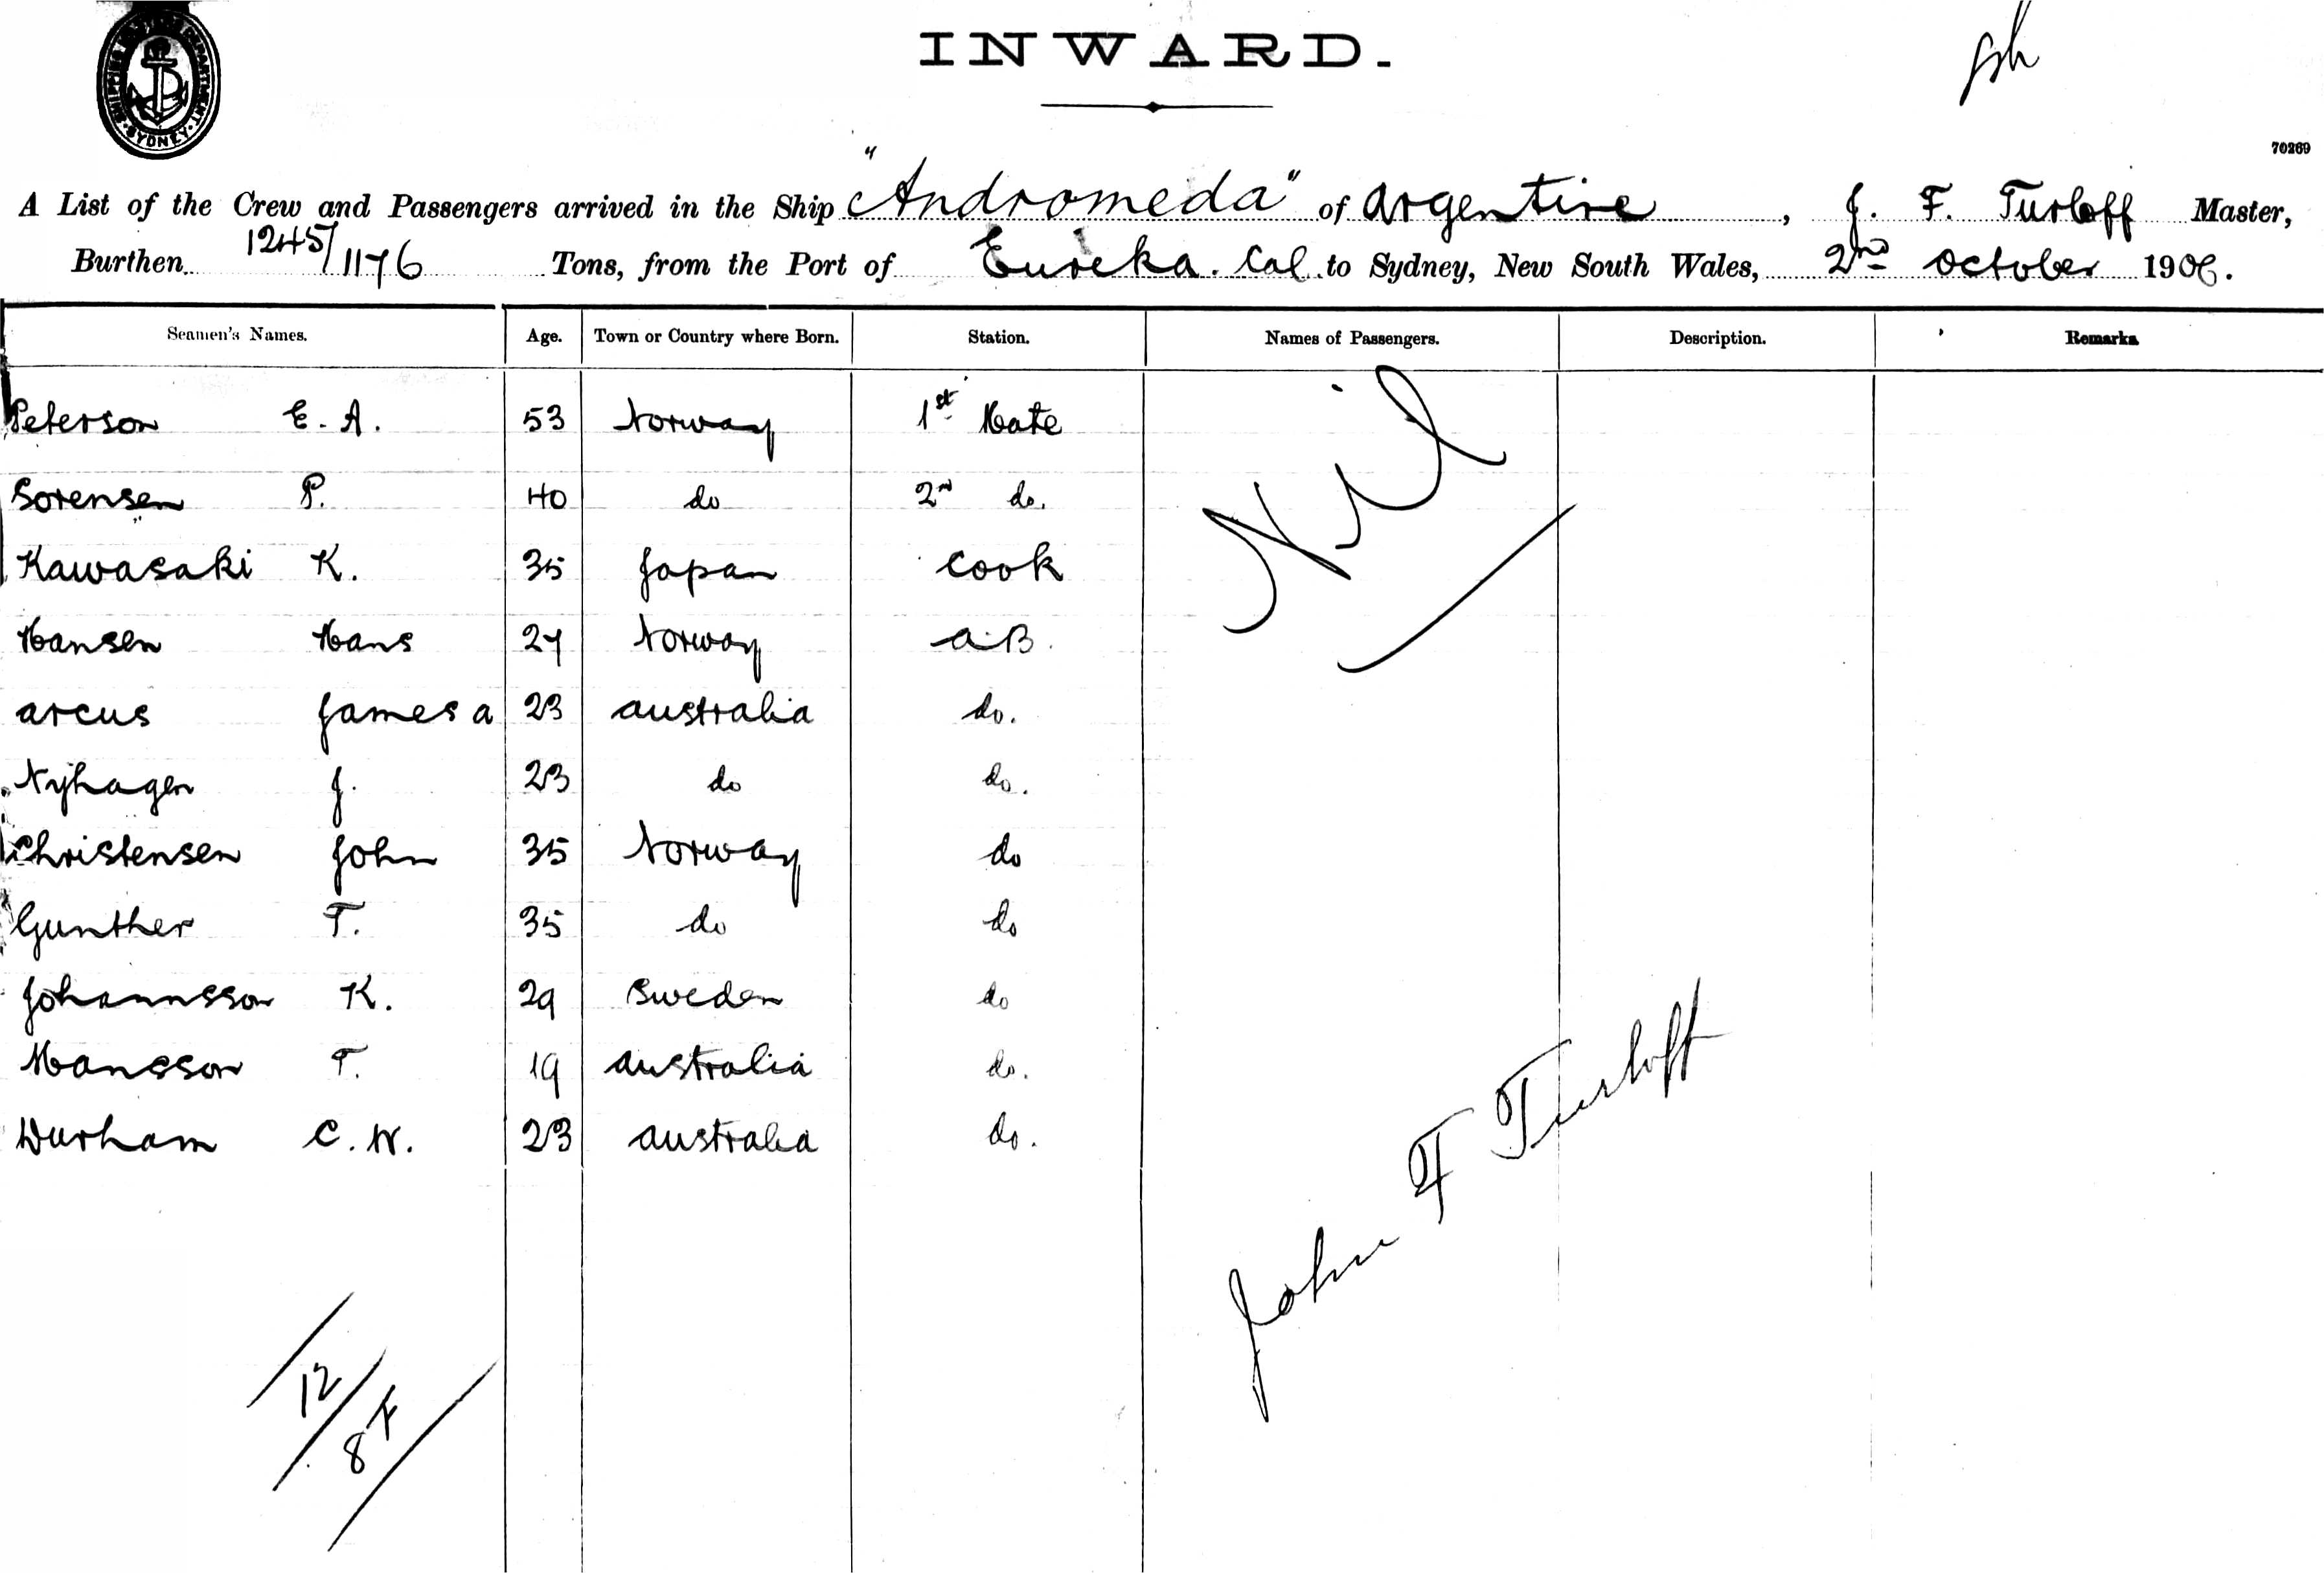 SHIPPING MASTER'S DEPARTMENT · SYDNEY ·
INWARD.
70269
A List of the Crew and Passengers arrived in the Ship "Andromeda" of Argentine, J. F. Turloff Master,
Burthen 1245/1176 Tons, from the Port of Eureka. Cal to Sydney, New South Wales, 2nd October 1906.
Seamen's Names. Age. Town or Country where Born. Station. Names of Passengers. Description. Remarks
Peterson E. A. 53 Norway 1st Mate
Sorensen P. 40 do 2nd do.
Kawasaki K. 35 Japan Cook
Hansen Hans 27 Norway A.B.
Arcus James A 23 Australia do.
Nyhagen J. 23 do do.
Christensen John 35 Norway do
Gunther T. 35 do do
Johannsson K. 29 Sweden do
Mansson T. 19 Australia do.
Durham C. W. 23 Australia do.
Nil
John F Turloff
12
8